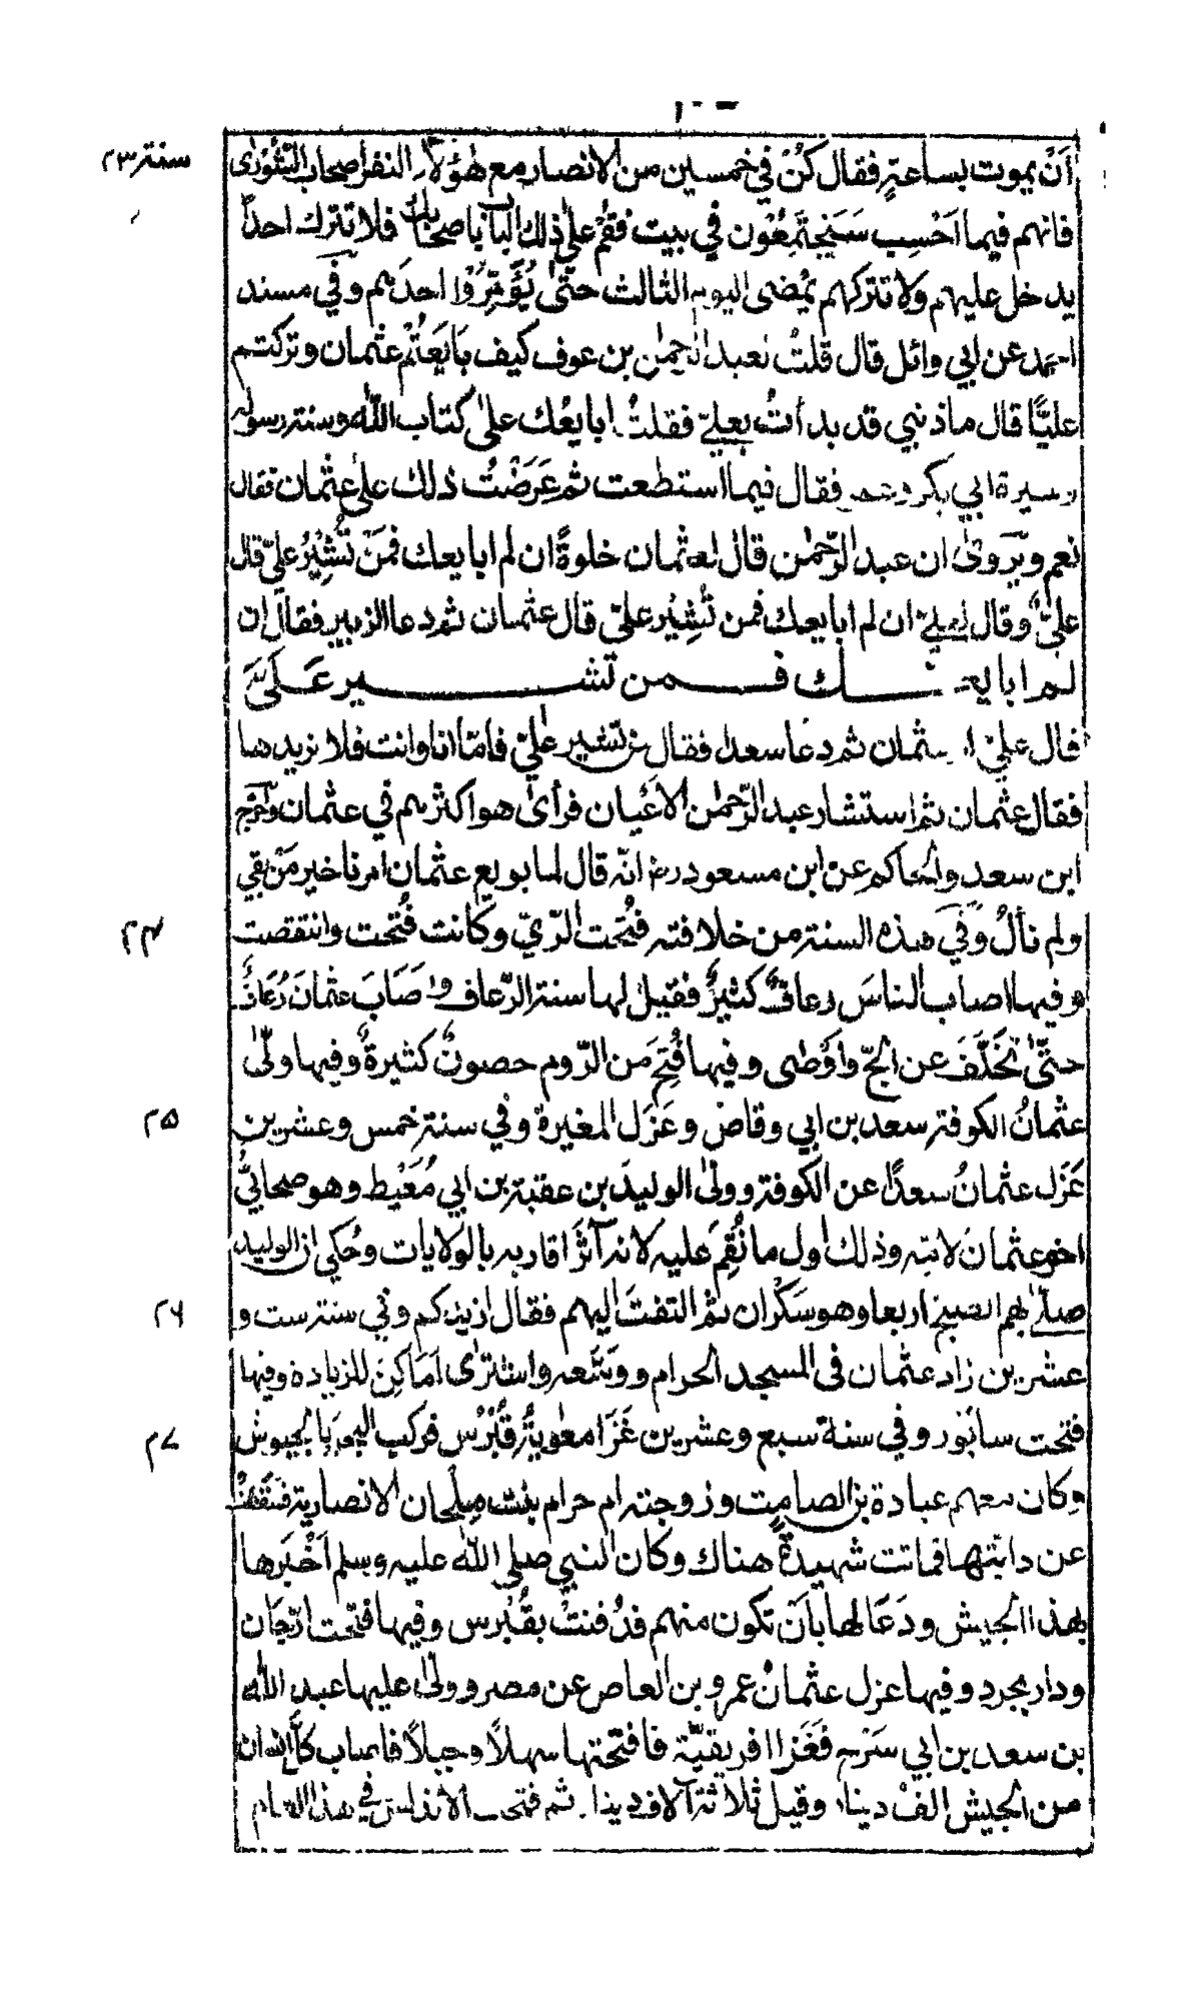 سنة ٢٣
أَنْ يموت بساعةٍ فقال كُنْ في خمسين من الانصار مع هٰؤلاء النفر اصحاب الشُّورٰى
فانهم فيما اَحْسِب سَيَجْتَمِعُون في بيت فقُمْ علٰى ذلك الباب باصحابك فلا تترك احداً
يدخل عليهم ولا تتركهم يمْضى اليوم الثالث حتّٰى يُؤَمِّرُوْا احدَهم وفي مسند
احمد عن ابي وائل قال قلتُ لعبد الرحمٰن بن عوف كيف بَايَعْتُم عثمان وتركتم
عليًّا قال ماذنبي قد بدأتُ بعليّ فقلتُ ابايعُك علٰى كتاب الله وسنة رسوله
وسيرة ابي بكر وعمر فقال فيما استطعت ثم عَرَضْتُ ذلك على عثمان فقال
نعم ويُروٰى ان عبد الرّحمٰن قال لعثمان خلوةً ان لم ابايعك فمَنْ تُشِيْرُ عليّ قال
عليٌّ وقال لعليّ ان لم ابايعك فمن تُشِيْر عليّ قال عثمان ثم دعا الزبير فقال ان
لم ابايعك فمن تشير عَلَيَّ
قال عليّ او عثمان ثم دعا سعدا فقال من تشير عليّ فامّا انا وانت فلا نريدها
فقال عثمان ثم استشار عبد الرّحمٰن الاَعْيان فرأىٰ هوا اكثرهم في عثمان واخرج
ابن سعد والحاكم عن ابن مسعود رض انّه قال لما بويع عثمان امرنا خير مَنْ بقي
ولم نألُ وَفي هذه السنة من خلافته فُتِحَت الرّيّ وكانت فُتِحت وانتقضت
٢٤
وفيها اصاب الناسَ رعافٌ كثيرٌ فقيل لها سنة الرّعاف واَصَابَ عثمانَ رُعافٌ
حتّٰى تَخَلَّفَ عن الحجّ واَوْصٰى وفيها فُتِحَ من الرّوم حصونٌ كثيرةٌ وفيها ولّٰى
عثمانُ الكوفة سعد بن ابي وقاص وعَزَل المغيرة وفي سنة خمس وعشرين
٢٥
عَزَل عثمانُ سعدًا عن الكوفة وولّٰى الوليدَ بن عقبة بن ابي مُعَيْط وهو صحابيٌّ
اخو عثمانَ لامّه وذلك اول ما نُقِمَ عليه لانه آثَرَ اقاربه بالولايات وحُكي ان الوليد
صلّٰى بهم الصبح اربعا وهو سَكْران ثم التفتَ اليهم فقال ازيدكم وفي سنة ست و
٢٦
عشرين زاد عثمان في المسجد الحرام ووَسَّعه واشترٰى اَمَاكِنَ للزيادة وفيها
فتحت سابُور وفي سنة سبع وعشرين غَزَا معٰويةُ قُبْرُس فركب البحرَ بالجيوش
٢٧
وكان معهم عبادة بن الصامت وزوجته ام حرام بنت مِلْحان الانصارية فسقطتْ
عن دابّتها فماتت شهيدةً هناك وكان النبي صلى الله عليه وسلم اَخْبَرها
بهذا الجيش ودَعَا لها بأن تكون منهم فدُفنتْ بقُبْرس وفيها فتحت ارّجَان
ودار بجرد وفيها عزل عثمانُ عمرو بن العاص عن مصر وولّٰى عليها عبد الله
بن سعد بن ابي سَرْح فغَزَا افريقيّة فافتتحها سهلاً وجبلاً فاصاب كلَّ انسان
من الجيش الفُ دينار وقيل ثلاثة آلاف دينار ثم فتحت الاندلس في هذا العام